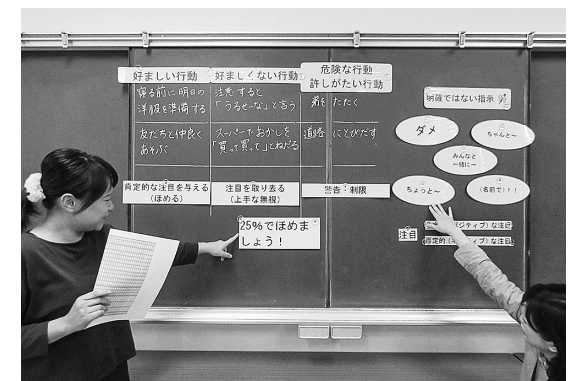 好ましい行動
好ましくない行動
危険な行動
許しがたい行動
寝る前に明日の
洋服を準備する
注意すると
「うるせーな」と言う
弟をたたく
友だちと仲良く
あそぶ
スーパーでおかしを
「買って買って」とねだる
道路にとびだす
肯定的な注目を与える
(ほめる)
注目を取り去る
(上手な無視)
警告:制限
25%でほめま
しょう!
明確ではない指示
ダメ
ちゃんと〜
みんなと
一緒に〜
ちょうと〜
(名前で)!!
注目
ジティブ)な注目
ティブ)な注目